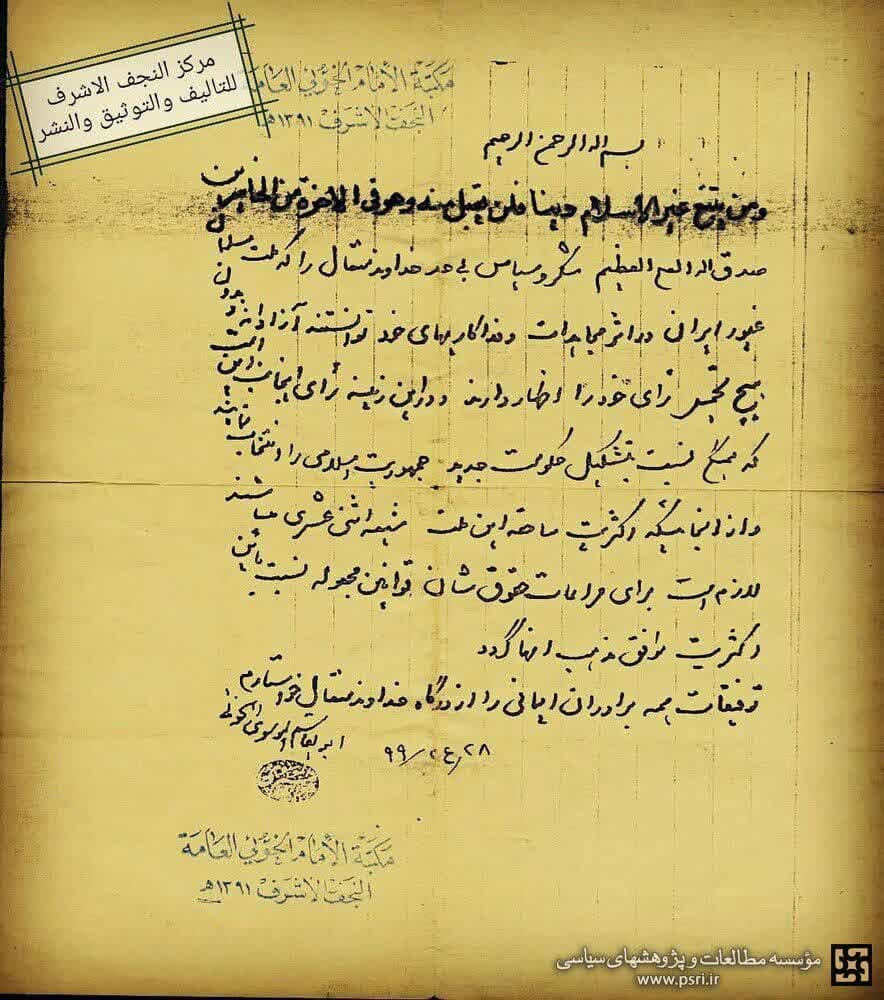 مركز النجف الاشرف
للتاليف والتوثيق والنشر
مكتبة الأمام الخوئي العامة
النجف الاشرف ١٣٩١هـ
بسم اله الرحمن الرحیم
ومن یبتغ غیر الاسلام دینا فلن یقبل منه وهو فی الاخرة من الخاسرین
صدق اله العلی العظیم شکر و سپاس بی حد خداوند متعال را که ملت مسلمان
غیور ایران در اثر مجاهدات و فداکاریهای خود توانستند آزادانه و بدون
هیچ تحمیل رأی خود را اظهار دارند و در این زمینه رأی اینجانب این است
که همگی نسبت بتشکیل حکومت جدید جمهوریت اسلامی را انتخاب نمایند
و از آنجائیکه اکثریت ساحقه این ملت شیعه اثنی عشری میباشند
لازم است برای مراعات حقوق شان قوانین مجعوله نسبت باین
اکثریت موافق مذهب انها گردد
توفیقات همه برادران ایمانی را از درگاه خداوند متعال خواستارم
ابوالقاسم الموسوی الخوئی
٢٨/ع٢/٩٩
مكتبة الأمام الخوئي العامة
النجف الاشرف ١٣٩١هـ
مؤسسه مطالعات و پژوهشهای سیاسی
www.psri.ir